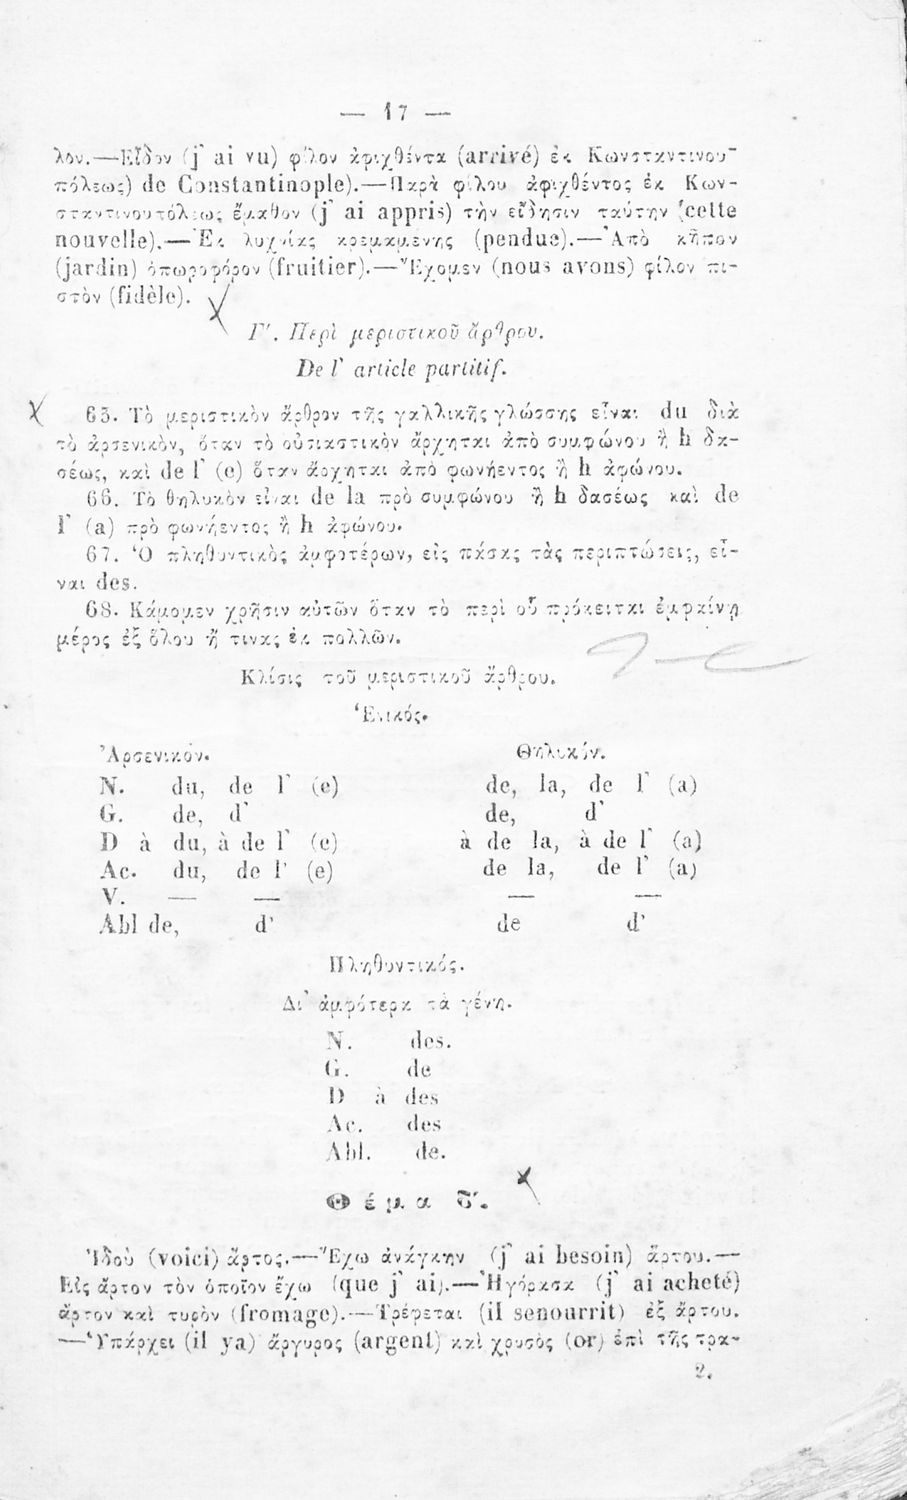 — 17 —
λον.—Εἶδον (j' ai vu) φίλον ἀφιχθέντα (arrivé) ἐκ Κωνσταντινου-
πόλεως) de Constantinople).—Παρὰ φίλου ἀφιχθέντος ἐκ Κων-
σταντινουπόλεως ἔμαθον (j' ai appris) τὴν εἴδησιν ταύτην (cette
nouvelle).—Ἐκ λυχνίας κρεμαμένης (pendue).—Ἀπὸ κῆπον
(jardin) ὀπωροφόρον (fruitier).—Ἔχομεν (nous avons) φίλον πι-
στὸν (fidèle).
Γ′. Περὶ μεριστικοῦ ἄρθρου.
De l' article partitif.
65. Τὸ μεριστικὸν ἄρθρον τῆς γαλλικῆς γλώσσης εἶναι du διὰ
τὸ ἀρσενικὸν, ὅταν τὸ οὐσιαστικὸν ἄρχηται ἀπὸ συμφώνου ἢ h δα-
σέως, καὶ de l' (e) ὅταν ἄρχηται ἀπὸ φωνήεντος ἢ h ἀφώνου.
66. Τὸ θηλυκὸν εἶναι de la πρὸ συμφώνου ἢ h δασέως καὶ de
l' (a) πρὸ φωνήεντος ἢ h ἀφώνου.
67. Ὁ πληθυντικὸς ἀμφοτέρων, εἰς πάσας τὰς περιπτώσεις, εἶ-
ναι des.
68. Κάμομεν χρῆσιν αὐτῶν ὅταν τὸ περὶ οὗ πρόκειται ἐμφαίνῃ
μέρος ἐξ ὅλου ἤ τινας ἐκ πολλῶν.
Κλίσις τοῦ μεριστικοῦ ἄρθρου.
Ἑνικός.
Ἀρσενικόν. Θηλυκόν.
N. du, de l' (e) de, la, de l' (a)
G. de, d' de, d'
D à du, à de l' (e) à de la, à de l' (a)
Ac. du, de l' (e) de la, de l' (a)
V. — — — —
Abl de, d' de d'
Πληθυντικός.
Δι' ἀμφότερα τὰ γένη.
N. des.
G. de
D à des
Ac. des
Abl. de.
Θέμα δ′.
Ἰδοὺ (voici) ἄρτος.—Ἔχω ἀνάγκην (j' ai besoin) ἄρτου.—
Εἰς ἄρτον τὸν ὁποῖον ἔχω (que j' ai).—Ἠγόρασα (j' ai acheté)
ἄρτον καὶ τυρὸν (fromage).—Τρέφεται (il senourrit) ἐξ ἄρτου.
—Ὑπάρχει (il ya) ἄργυρος (argent) καὶ χρυσὸς (or) ἐπὶ τῆς τρα-
2.